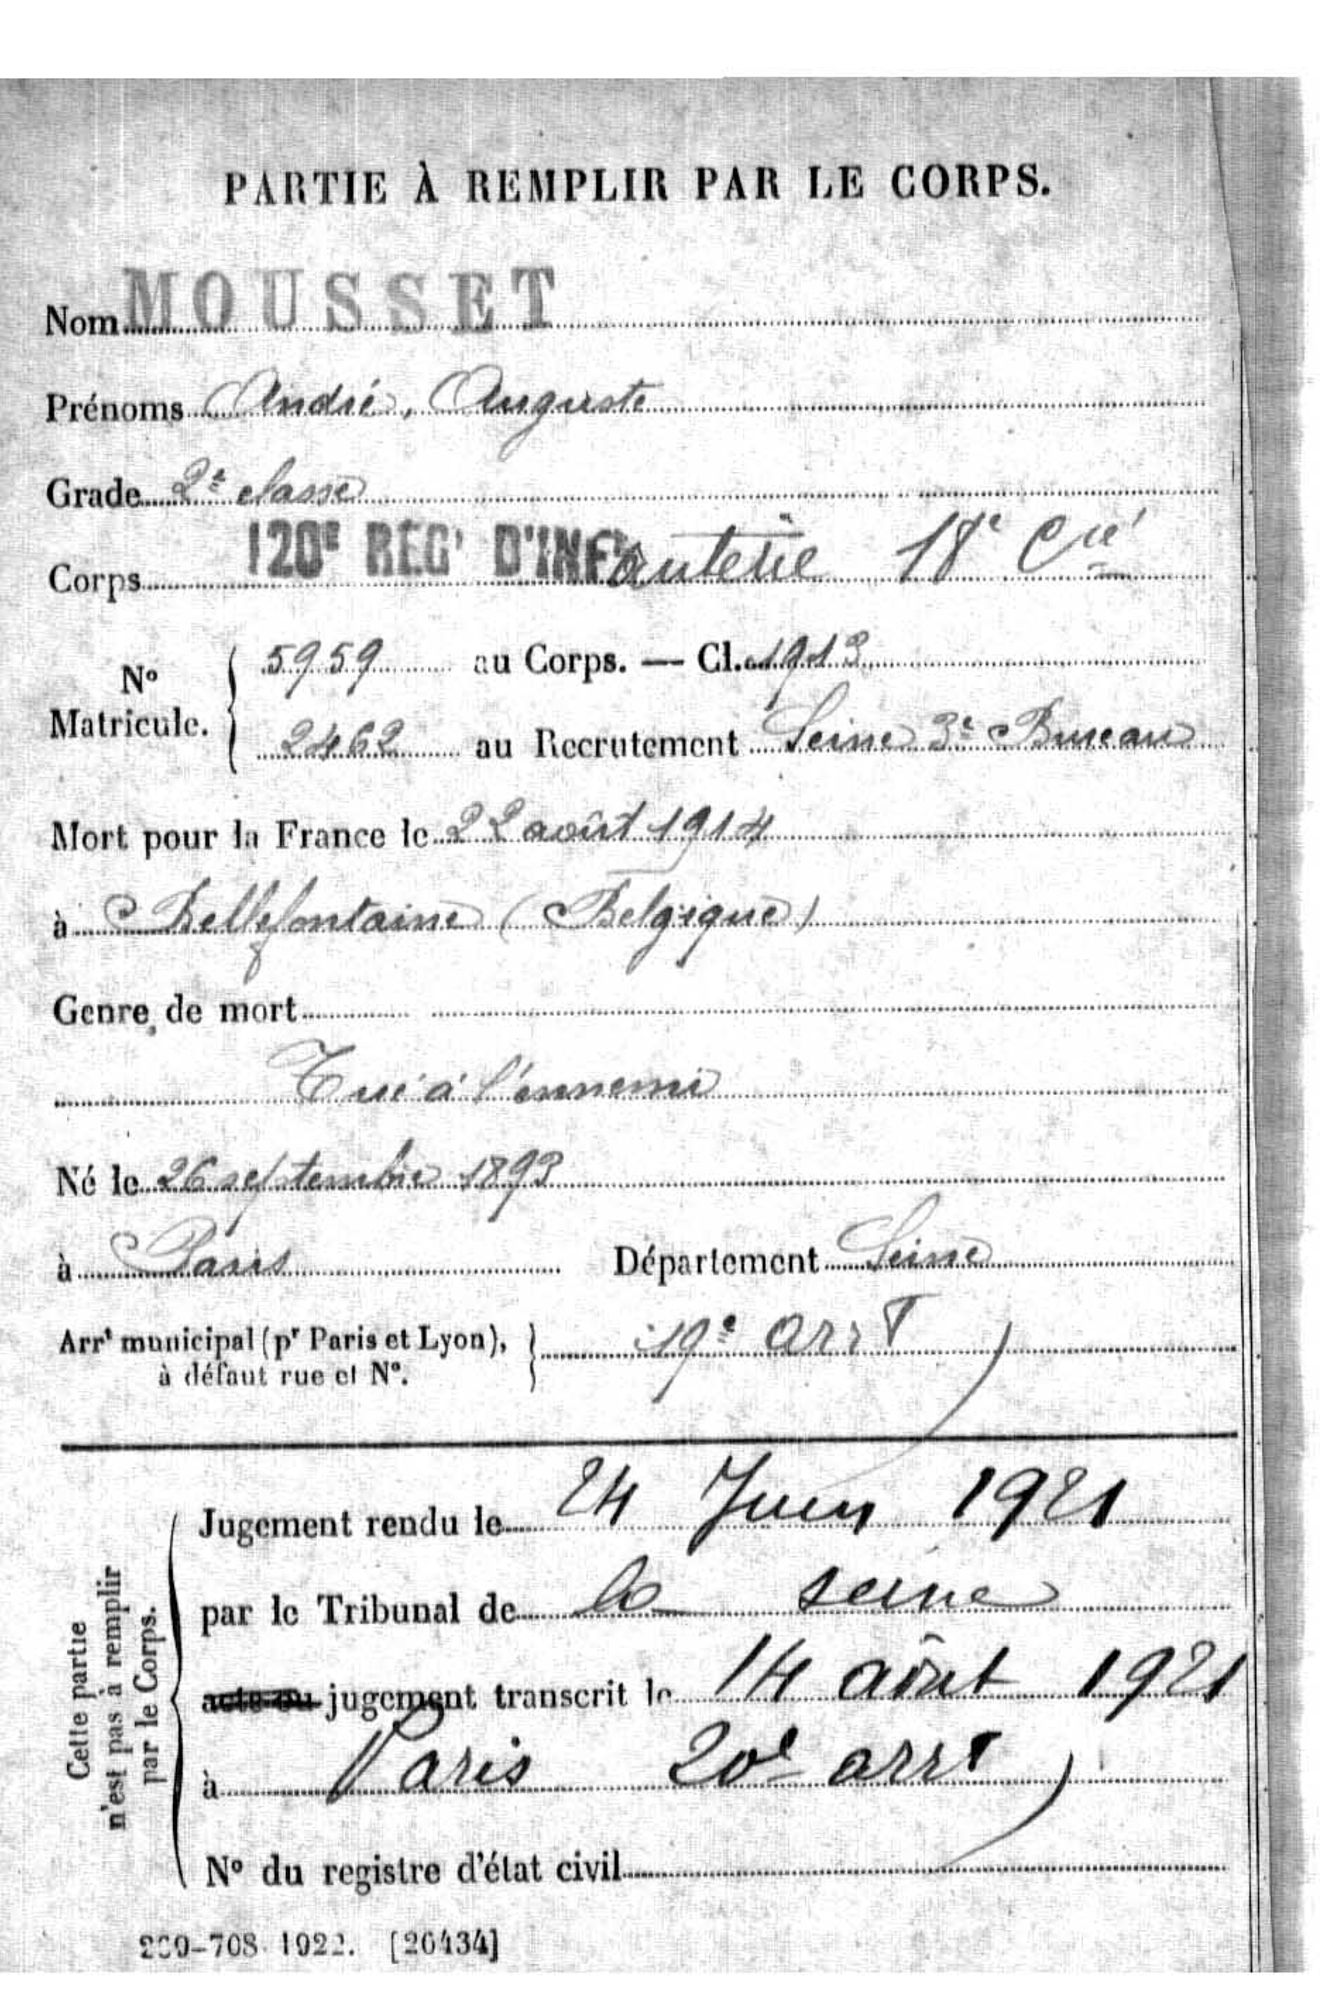 PARTIE À REMPLIR PAR LE CORPS.
Nom MOUSSET
Prénoms André, Auguste
Grade 2e classe
Corps 120E REGt D'INFanterie 18e Cie
No Matricule. 5959 au Corps. — Cl. 1913
2462 au Recrutement Seine 3e Bureau
Mort pour la France le 22 août 1914
à Bellefontaine (Belgique)
Genre de mort
Tué à l'ennemi
Né le 26 septembre 1893
à Paris Département Seine
Arrt municipal (pr Paris et Lyon), à défaut rue et No. 19e arrt
Cette partie n'est pas à remplir par le Corps.
Jugement rendu le 24 Juin 1921
par le Tribunal de la seine
acte ou jugement transcrit le 14 août 1921
à Paris 20e arrt
No du registre d'état civil
1922. [26434]